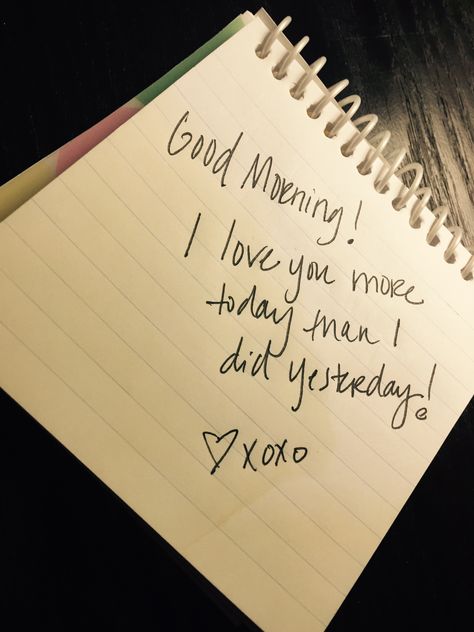 Good Morning!
I love you more
today than I
did yesterday!
♡ xoxo